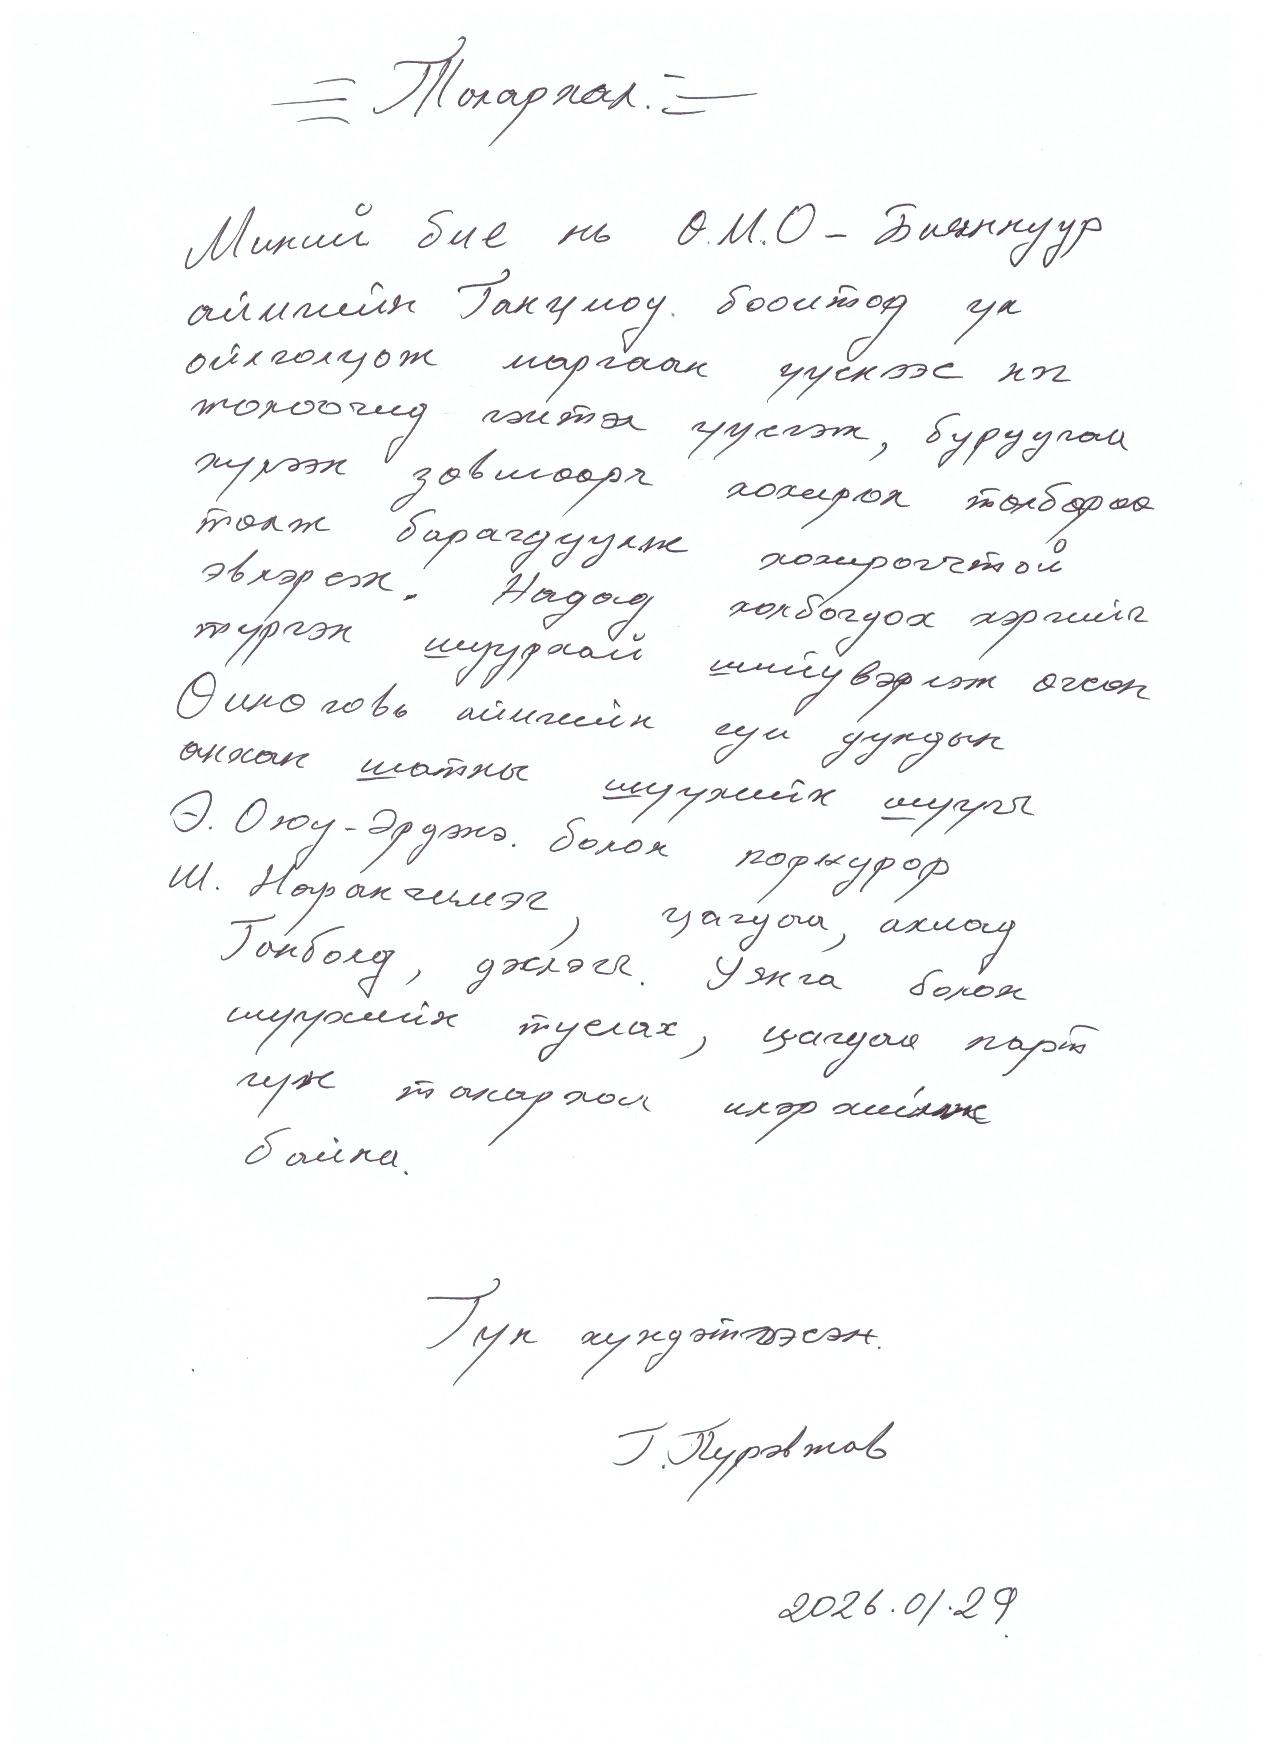 Талархал.
Миний бие нь Ө.М.О - Баяннуур
аймгийн Ганцмод боомтод үл
ойлголцож маргаан үүснээс нэг
жолоочид гэмтэл үүсгэж, буруугаа
хүлээж зөвшөөрч хохирол төлбөрөө
төлж барагдуулж хохирогчтой
эвлэрсэн. Надад холбогдох хэргийг
түргэн шуурхай шийдвэрлэж өгсөн
Өмнөговь аймгийн сум дундын
анхан шатны шүүхийн шүүгч
Э. Оюу-Эрдэнэ. болон поркурор
Ш. Наранчимэг, цагдаа, ахлад
Ганболд, дэслэгч. Уянга болон
шүүхийн туслах, цагдаа парт
гүн талархал илэрхийлж
байна.
Гүн хүндэтгэсэн.
Г.Пүрэвжав
2026.01.29